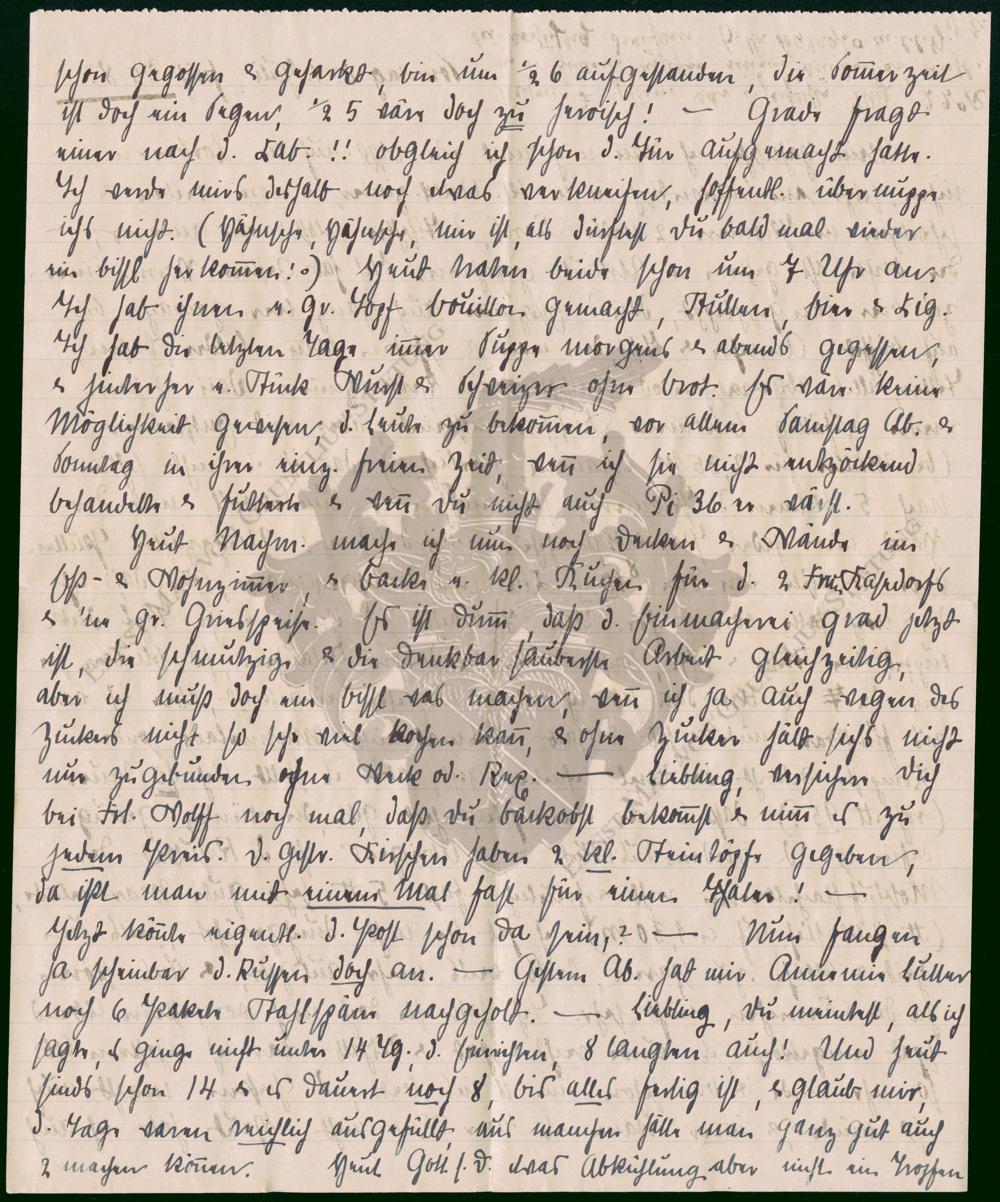 schon gegossen & geharkt, bin um ½ 6 aufgestanden, die Somerzeit
ist doch ein Segen, ½ 5 wäre doch zu heroisch! — Grade fragt
einer nach d. Lab. !! obgleich ich schon d. Tür aufgemacht hatte.
Ich werde mirs deshalb noch etwas verkneifen, hoffentl.
ichs nicht. ( mir ist, als dürftest du bald mal wieder
ein bissl herkomen! ) Heut traten beide schon um 7 Uhr an.
Ich hab ihnen e. gr. Topf bouillon gemacht, Stullen, bier & Zig.
Ich hab die letzten Tage imer Suppe morgens & abends gegessen,
& hinterher e. Stück Wurst & Schweizer ohne brot. Es wäre keine
Möglichkeit gewesen, d. Leute zu bekomen, vor allem Samstag Ab. &
Sonntag in ihrer einz. freien Zeit, wen ich sie nicht entzöckend
behandelte & futterte & wen du nicht auch Pi 36 er wärst.
Heut Nachm. mache ich nun noch Decken & Wände im
Eß- & Wohnzimer, & backe e. kl. Kuchen für d. 2
& 'ne gr. Griesspeise. Es ist dum, daß d. Einmacherei grad jetzt
ist, die schmutzige & die denkbar sauberste Arbeit gleichzeitig,
aber ich muß doch ein bissl was machen, wen ich ja auch wegen des
Zuckers nicht so sehr viel kochen kan, & ohne Zucker hält sichs nicht
nur zugebunden ohne Weck od. Rex. — Liebling, versichere dich
bei Frl. Wolff noch mal, daß du backobst bekomst & nim es zu
jedem Preis. D. gestr. Kirschen haben 2 kl. Steintöpfe gegeben,
da ißt man mit einem Mal fast für einen Thaler! —
Jetzt könte eigentl. d. Post schon da sein,? — Nun fangen
ja scheinbar d. Russen doch an. — Gestern Ab. hat mir Annemie Lutter
noch 6 Pakete Stahlspäne nachgeholt. — Liebling, du meintest, als ich
sagte, es ginge nicht unter 14 Tg. d. Einrichten, 8 langten auch! Und heut
sinds schon 14 & es dauert noch 8, bis alles fertig ist, & glaub mir,
d. Tage waren reichlich ausgefüllt, aus manchen hätte man ganz gut auch
2 machen könen. Heut Gott s. D. etwas Abkühlung aber nicht ein Tropfen